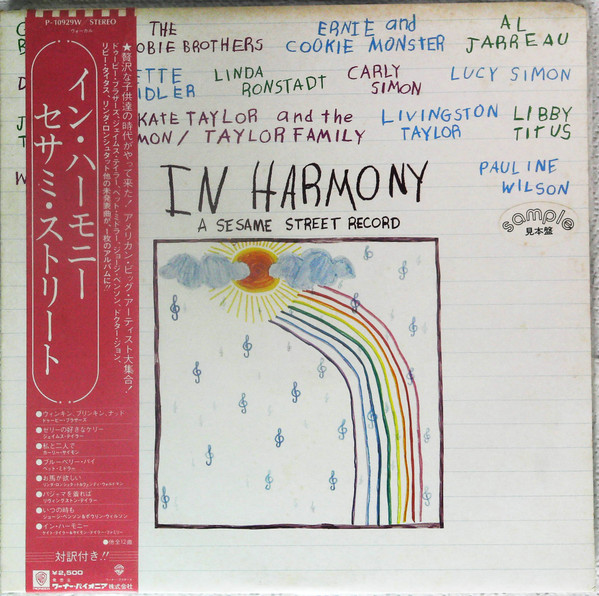 P-10929W / STEREO
ヴォーカル
イン・ハーモニー
セサミ・ストリート
★贅沢な子供達の時代がやって来た! アメリカン・ビッグ・アーティスト大集合!
ドゥービー・ブラザーズ、ジェイムス・テイラー、ベット・ミドラー、ジョージ・ベンソン、ドクター・ジョン、
リビー・タイタス、リンダ・ロンシュタット他の未発表曲が、1枚のアルバムに!!
●ウィンキン、ブリンキン、ナッド
ドゥービー・ブラザーズ
●ゼリーの好きなケリー
ジェイムス・テイラー
●私と二人で
カーリー・サイモン
●ブルーベリー・パイ
ベット・ミドラー
●お馬が欲しい
リンダ・ロンシュタット&ウェンディ・ウォルドマン
●パジャマを着れば
リヴィングストン・テイラー
●いつの時も
ジョージ・ベンソン&ポウリン・ウィルソン
●イン・ハーモニー
ケイト・テイラー&サイモン・テイラー・ファミリー
●他全12曲
対訳付き!!
¥2,500
ワーナー・パイオニア株式会社
THE
OBIE BROTHERS
ERNIE and
COOKIE MONSTER
AL
JARREAU
ETTE
IDLER
LINDA
RONSTADT
CARLY
SIMON
LUCY SIMON
KATE TAYLOR and the
MON/ TAYLOR FAMILY
LIVINGSTON
TAYLOR
LIBBY
TITUS
PAULINE
WILSON
IN HARMONY
A SESAME STREET RECORD
sample
見本盤